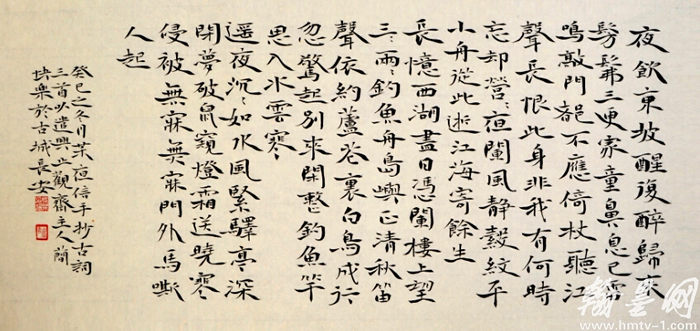 夜飲東坡醒復醉歸來
髣髴三更家童鼻息已雷
鳴敲門都不應倚杖聽江
聲長恨此身非我有何時
忘却營〻夜闌風静縠紋平
小舟從此逝江海寄餘生
長憶西湖盡日憑闌樓上望
三〻兩〻釣魚舟島嶼正清秋笛
聲依約蘆花裏白鳥成行
忽驚起別來閑整釣魚竿
思入水雲寒
遥夜沉〻如水風緊驛亭深
閉夢破鼠窺燈霜送曉寒
侵被無寐無寐門外馬嘶
人起
癸巳之冬月某夜信手抄古詞
三首以遣興止觀齋主人
於古城長安
翰墨网
www.hmtv-1.com